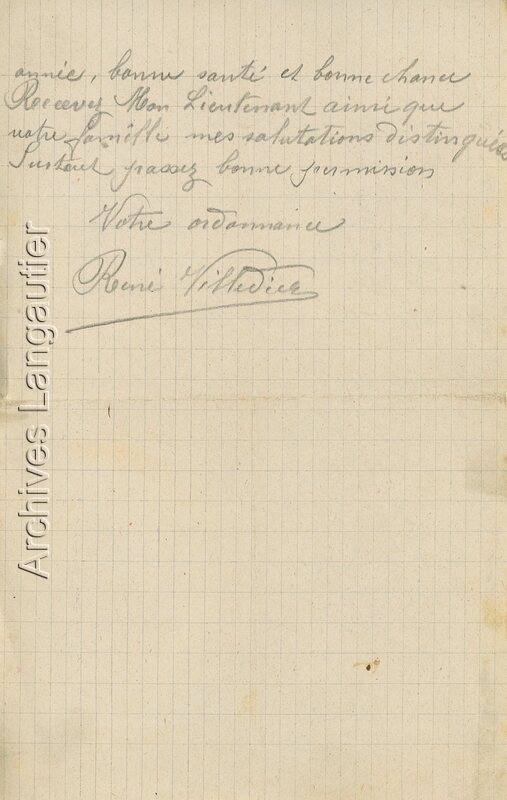 année, bonne santé et bonne chance
Recevez Mon Lieutenant ainsi que
votre famille mes salutations distinguées
Surtout passez bonne permission
Votre ordonnance
René Villedier
Archives Langautier